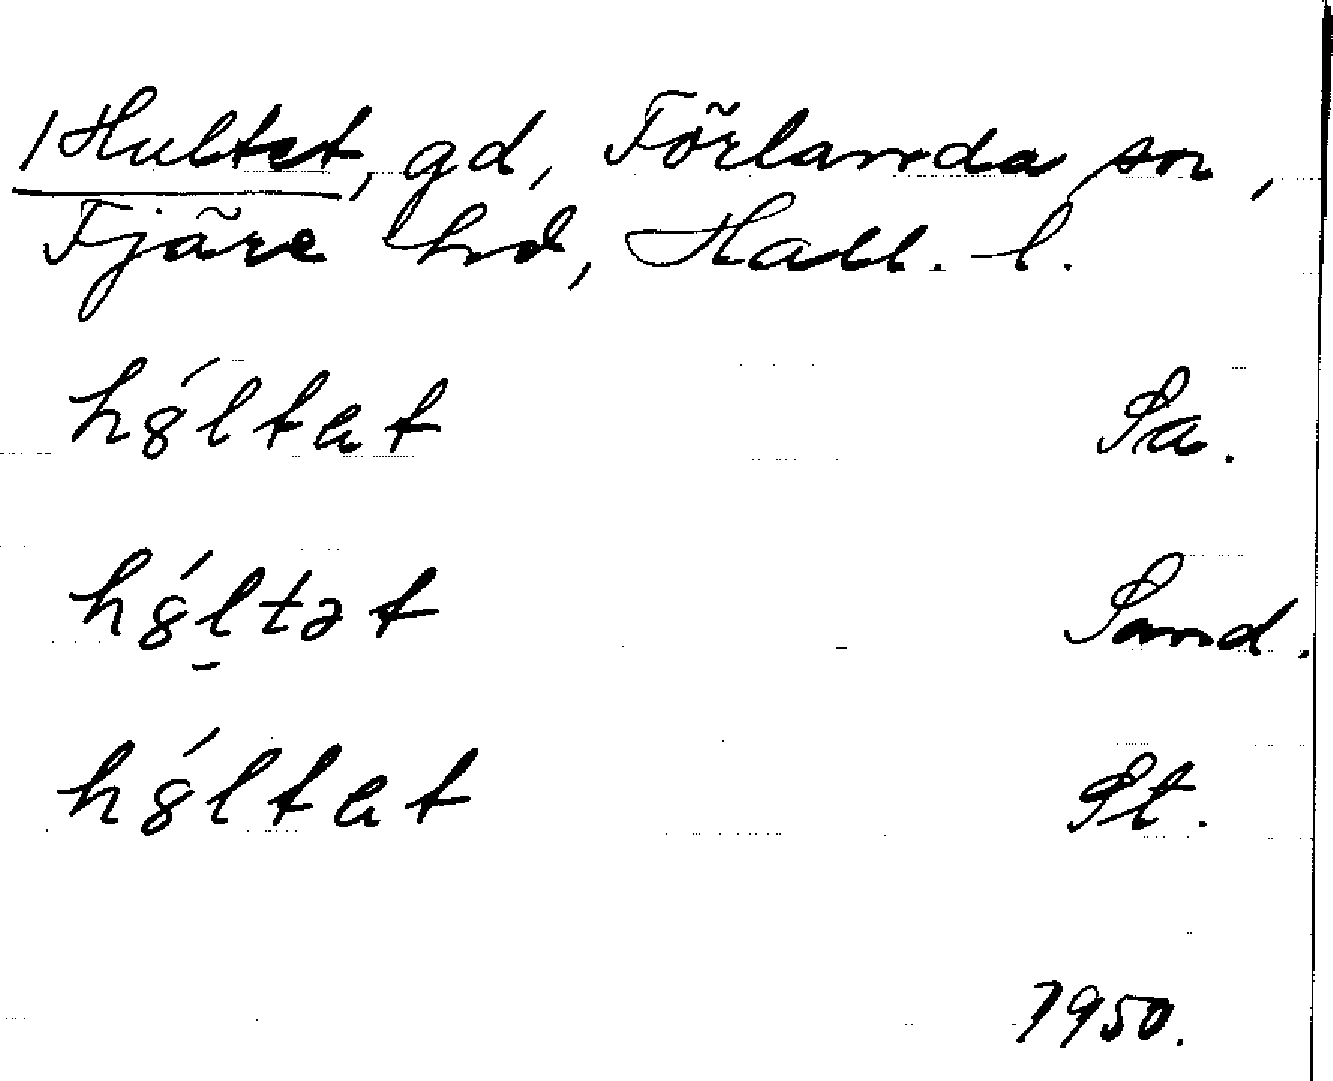 1 Hultet, gd, Förlanda sn,
Fjäre hd, Hall. l.
h8́ltat Sa.
h8́l̠tət Sand.
h8́ltat St.
1950.